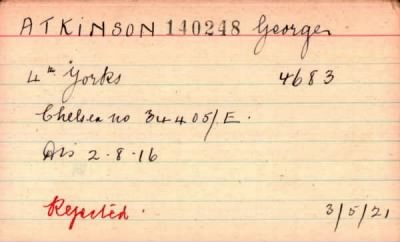 ATKINSON 140248 George
4th Yorks 4683
Chelsea no 34405/E.
Dis 2.8.16
Rejected. 3/5/21